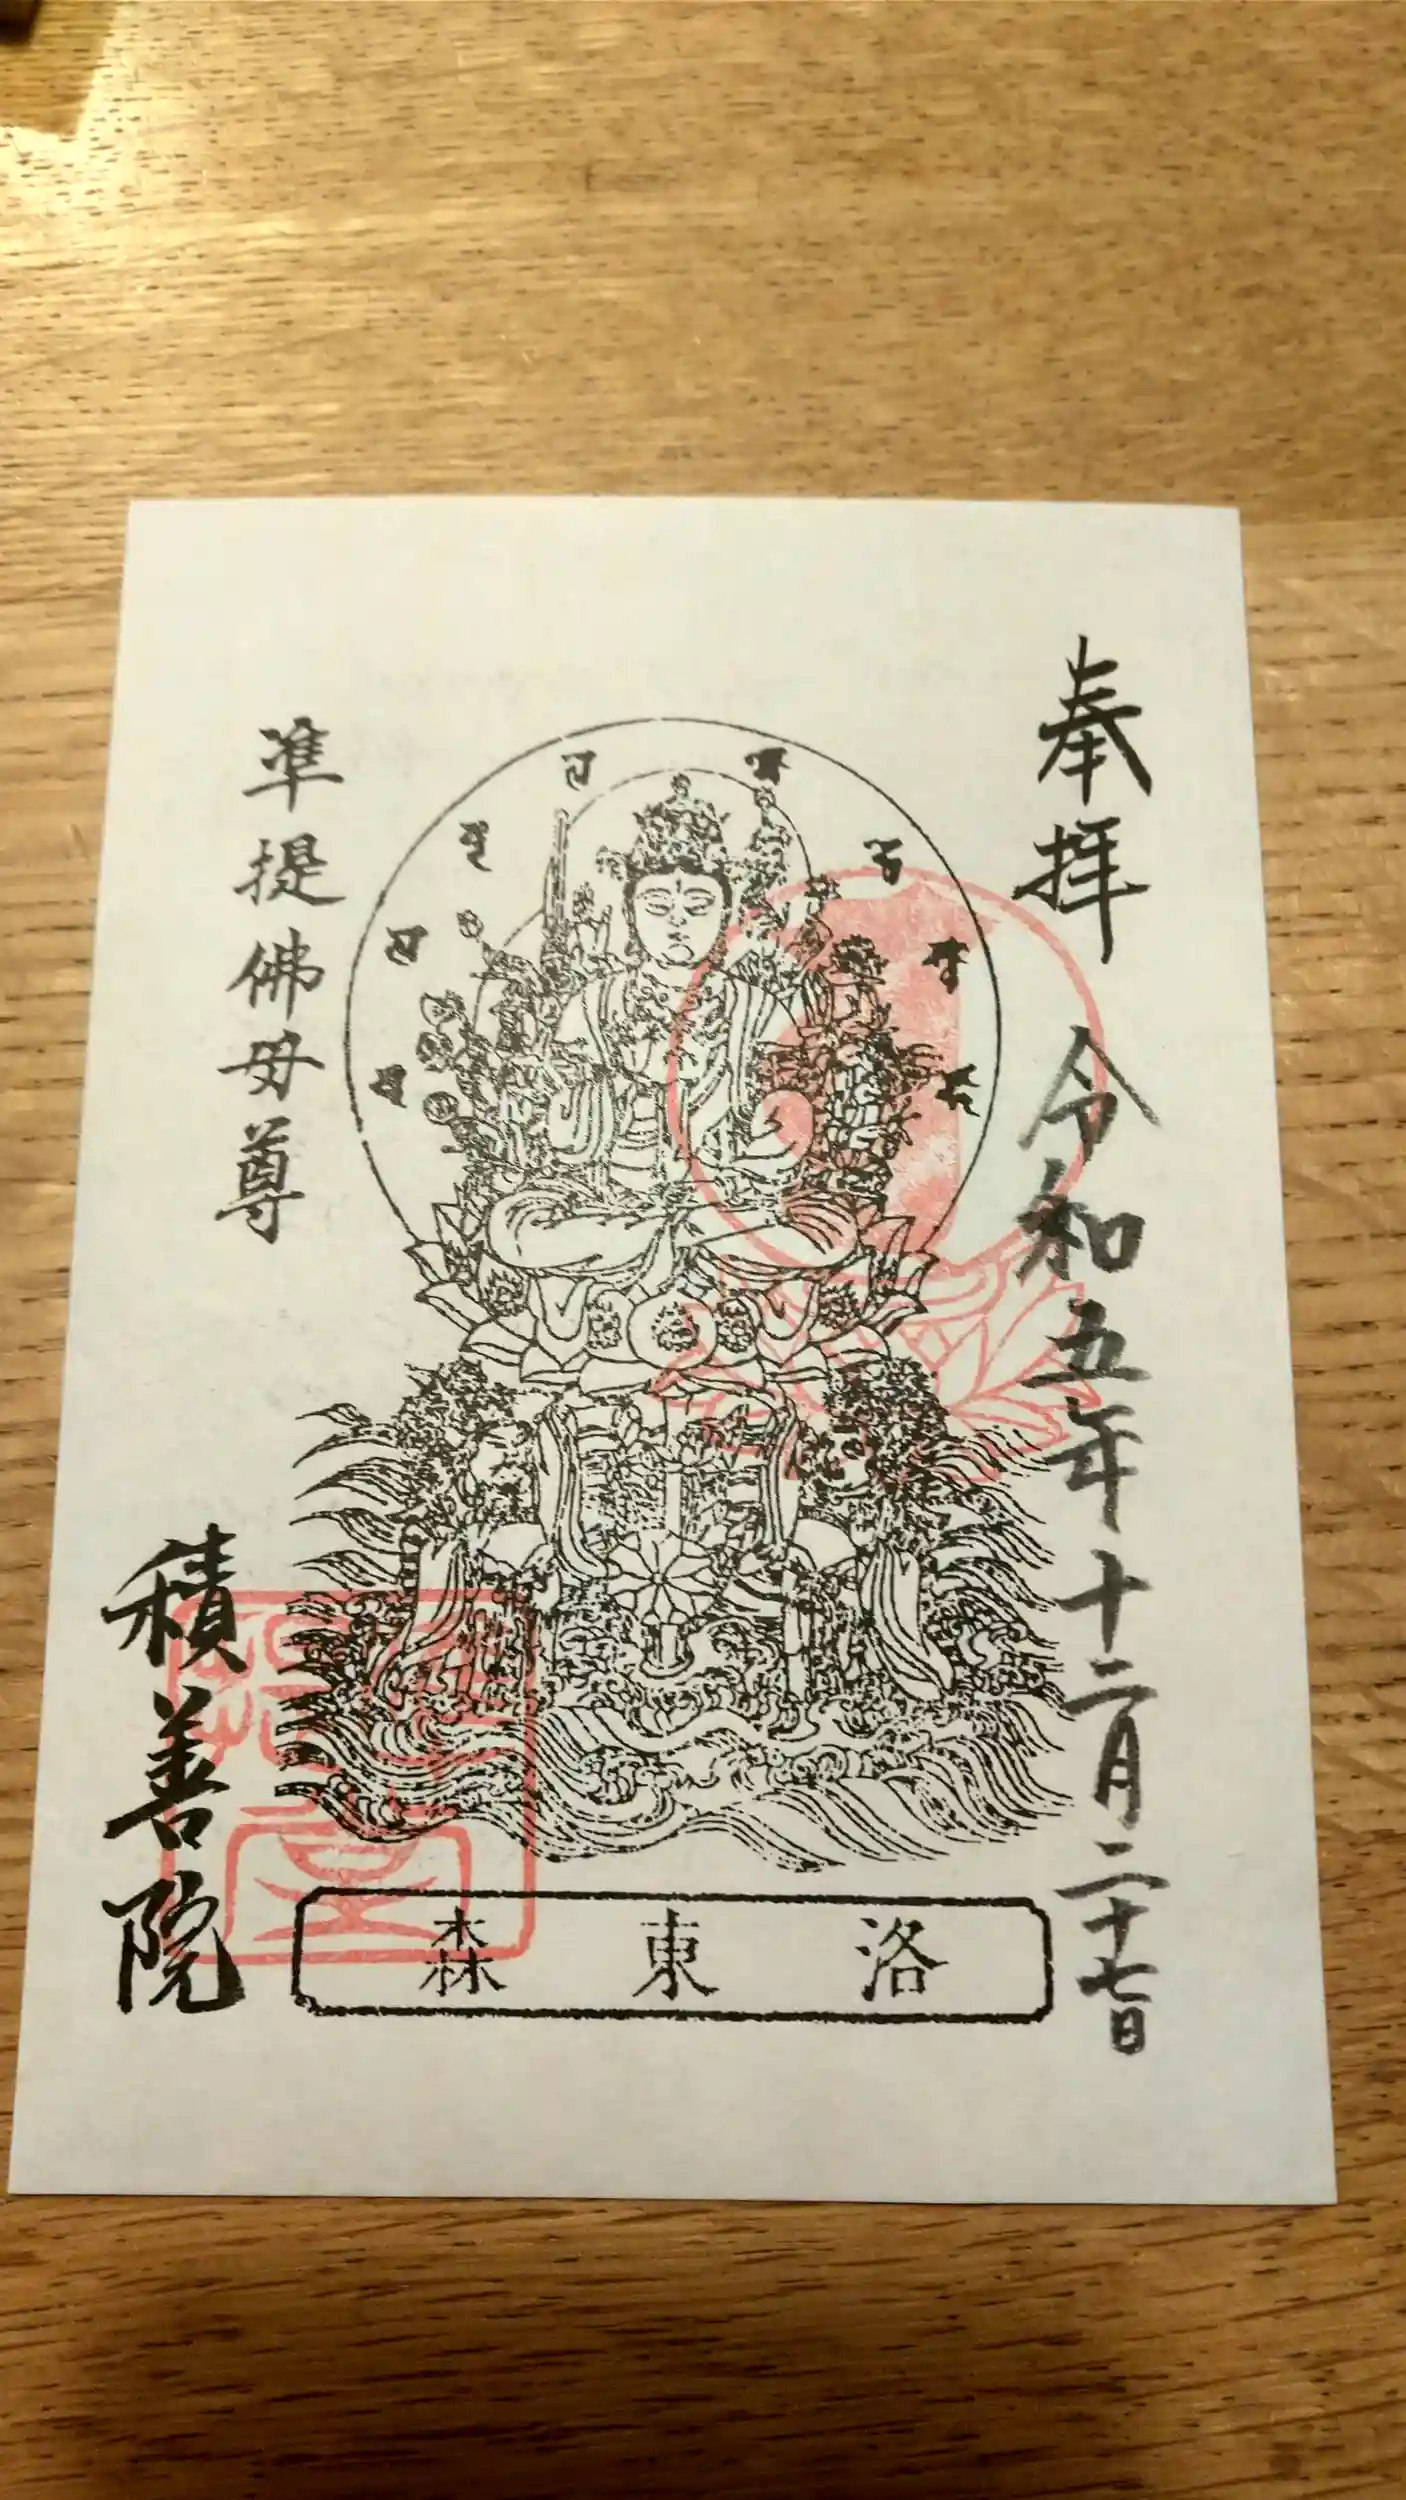 奉拝 令和五年十二月二十七日
準提佛母尊
積善院
洛東森